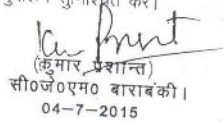 (कुमार प्रशान्त)
सी०जे०एम० बाराबंकी।
04-7-2015